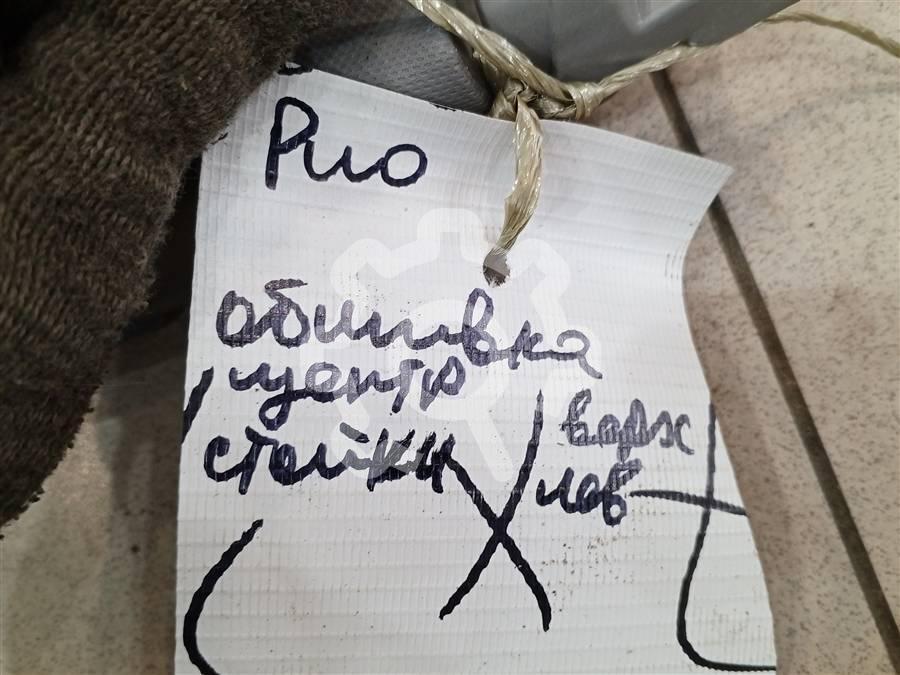 Рио
Обшивка
центр
стойки
верх
лев